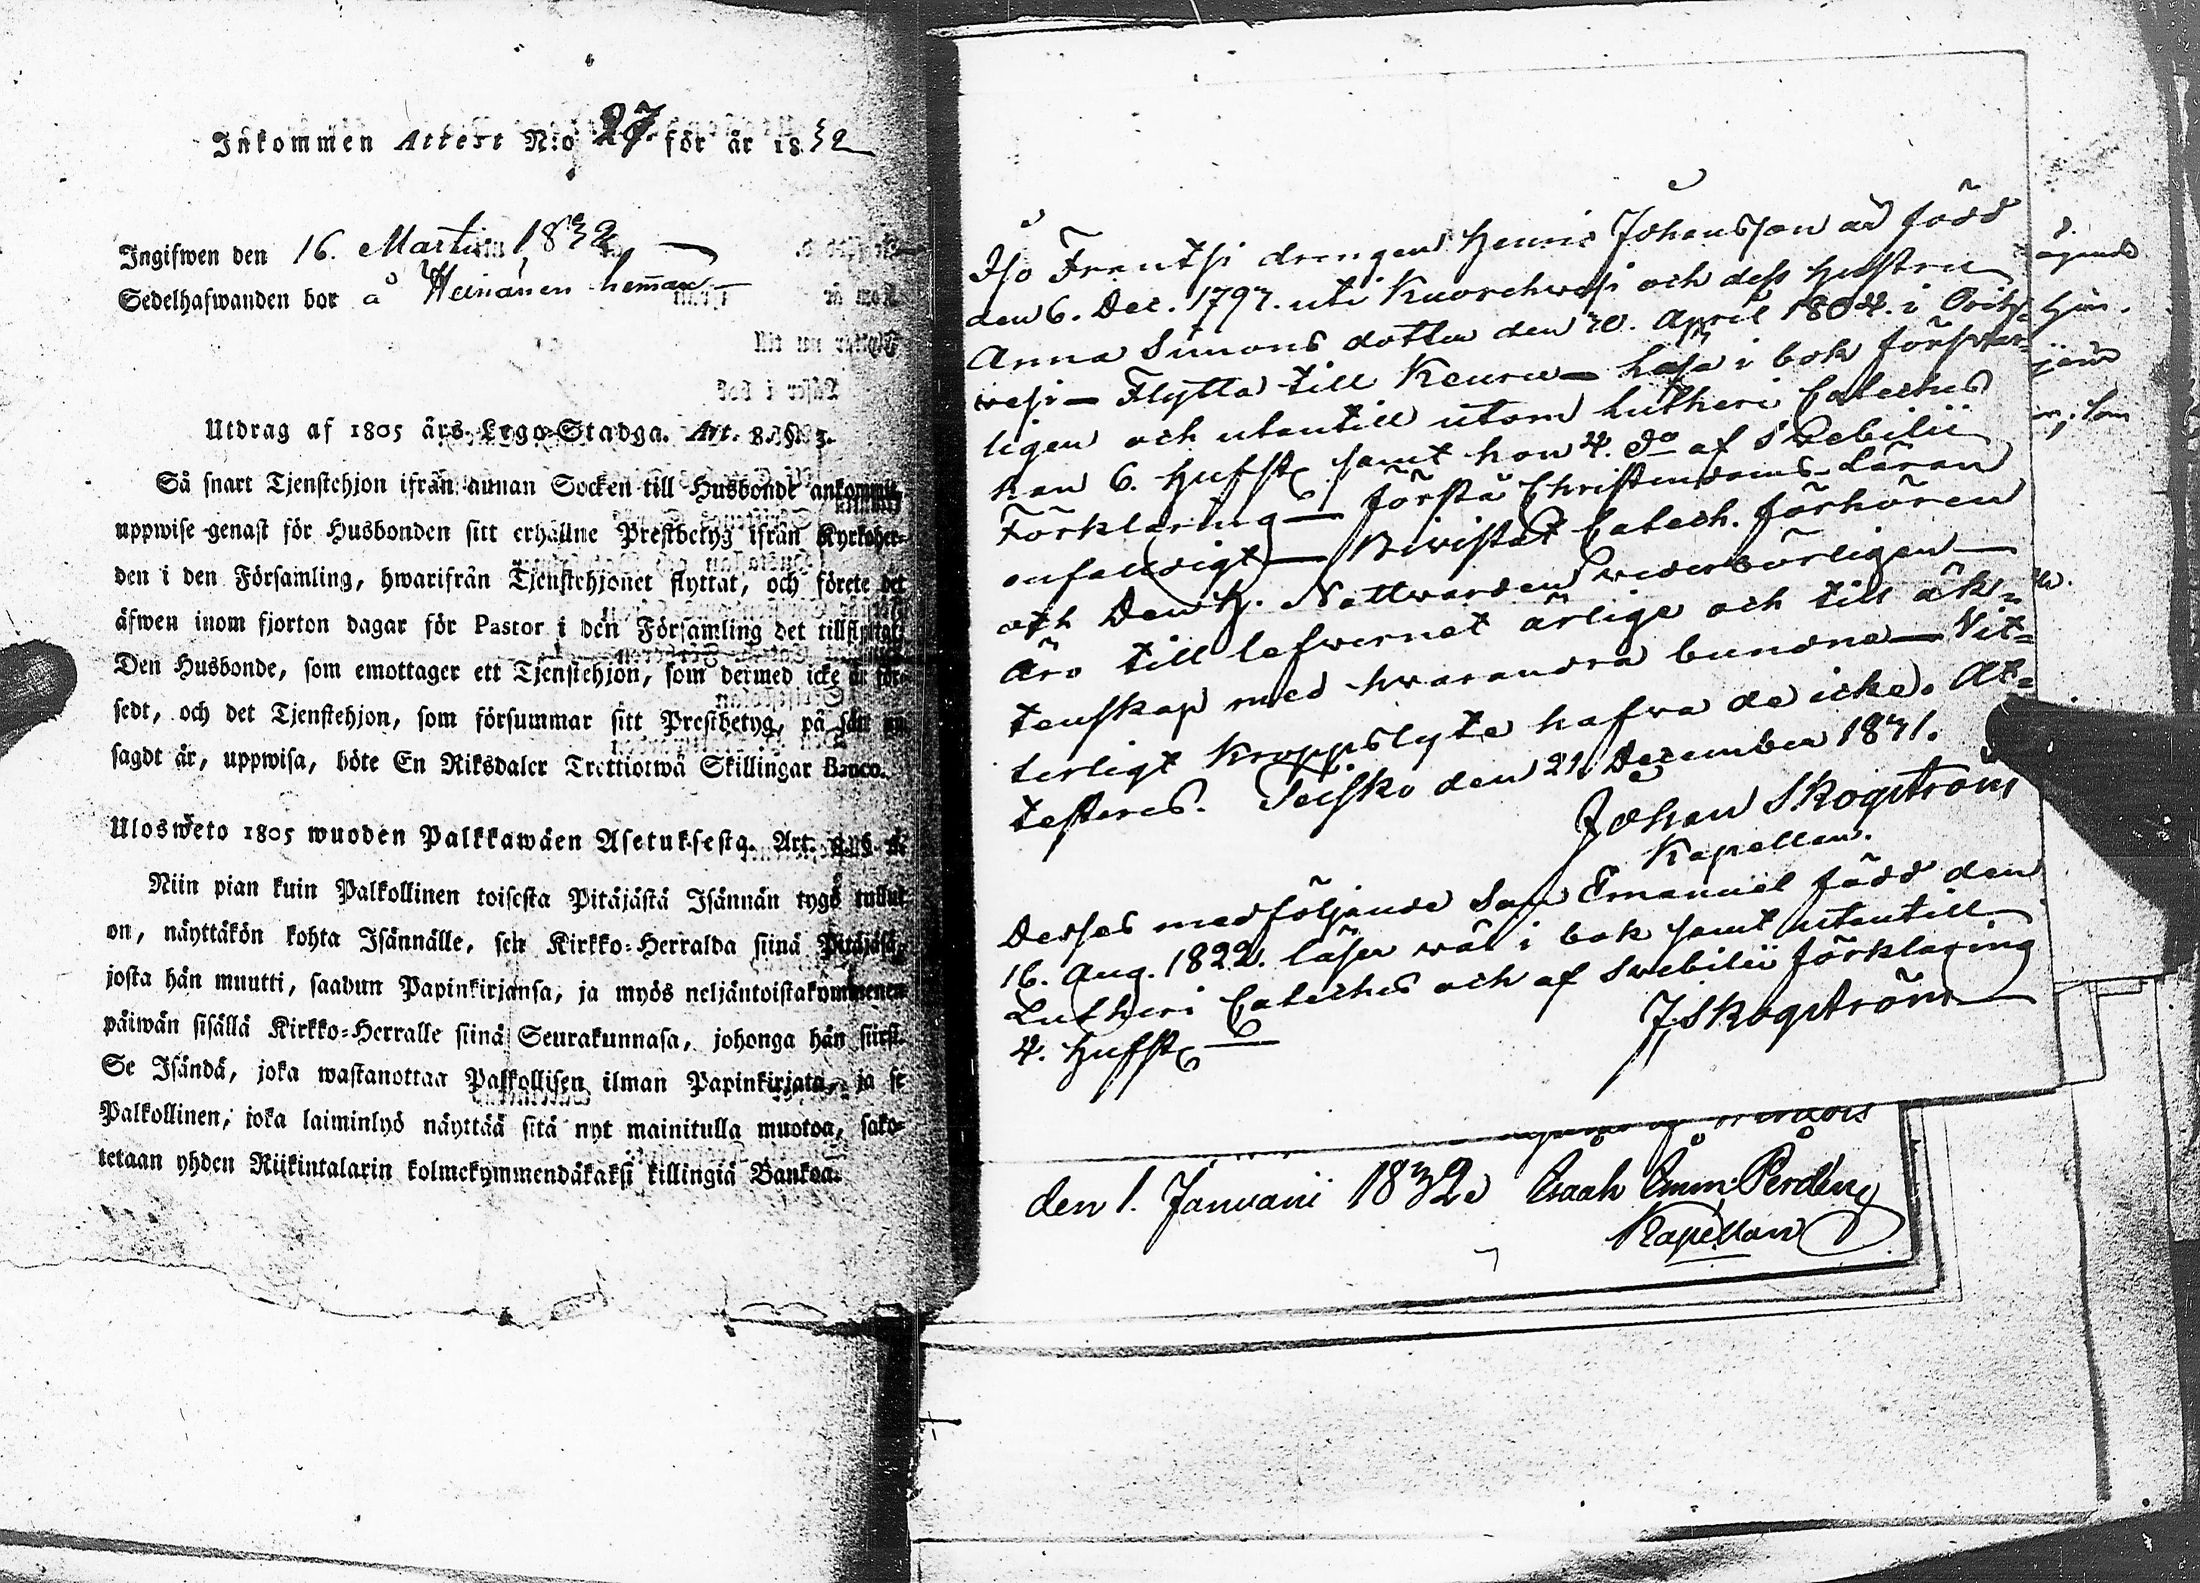 Inkommen Attest N:o 27 för år 1832
Ingifwen den 16. Martii 1832
Sedelhafwanden bor å Heinänen hemman
Utdrag af 1805 års Lego-Stadga. Art. 8. §. 3.
Så snart Tjenstehjon ifrån annan Socken till Husbonde ankommit,
uppwise genast för Husbonden sitt erhållne Prestbetyg ifrån Kyrkoher-
den i den Församling, hwarifrån Tjenstehjonet flyttat, och förete det
äfwen inom fjorton dagar för Pastor i den Församling det tillflyttat.
Den Husbonde, som emottager ett Tjenstehjon, som dermed icke är för-
sedt, och det Tjenstehjon, som försummar sitt Prestbetyg, på sätt nu
sagdt är, uppwisa, böte En Riksdaler Trettiotwå Skillingar Banco.
Ulosweto 1805 wuoden Palkkawäen Asetuksesta. Art.
Niin pian kuin Palkollinen toisesta Pitäjästä Isännän tygö tullut
on, näyttäkön kohta Isännälle, sen Kirkko-Herralda siinä Pitäjäsä,
josta hän muutti, saadun Papinkirjansa, ja myös neljäntoistakymmenen
päiwän sisällä Kirkko-Herralle siinä Seurakunnasa, johonga hän siirsi.
Se Isändä, joka wastanottaa Palkollisen ilman Papinkirjata, ja se
Palkollinen, joka laiminlyö näyttää sitä nyt mainitulla muotoa, sako-
tetaan yhden Riikintalarin kolmekymmendäkaksi killingiä Bankoa.
Iso Frantsi drengen Henric Johansson är född
den 6. Dec. 1797. uti Kuorehwesi och dess hustru
Anna Simons dotter den 20. April 1804. i Orih-
wesi — Flytta till Keuru — läsa i bok förswar-
ligen och utantill utom Lutheri Cateches
han 6. hufst. samt hon 4. do af Swebilii
Förklaring — förstå Christendoms-Läran
enfaldigt — Biwistat Catech. förhören
och Den H. Nattwarden wederbörligen —
Äro till lefwernet ärlige och till äk-
tenskap med hwarandra bundne — Wit-
terligt kroppslyte hafwa de icke. At-
testeres. Teisko den 21. December 1831.
Johan Skogström
Kapellan.
Desses medföljande Son Emanuel född den
16. Aug. 1822. läser wäl i bok samt utantill
Lutheri Cateches och af Swebilii förklaring
4. hufst.
J Skogström
den 1. Januarii 1832. Esaah Emm: Perdén
Kapellan